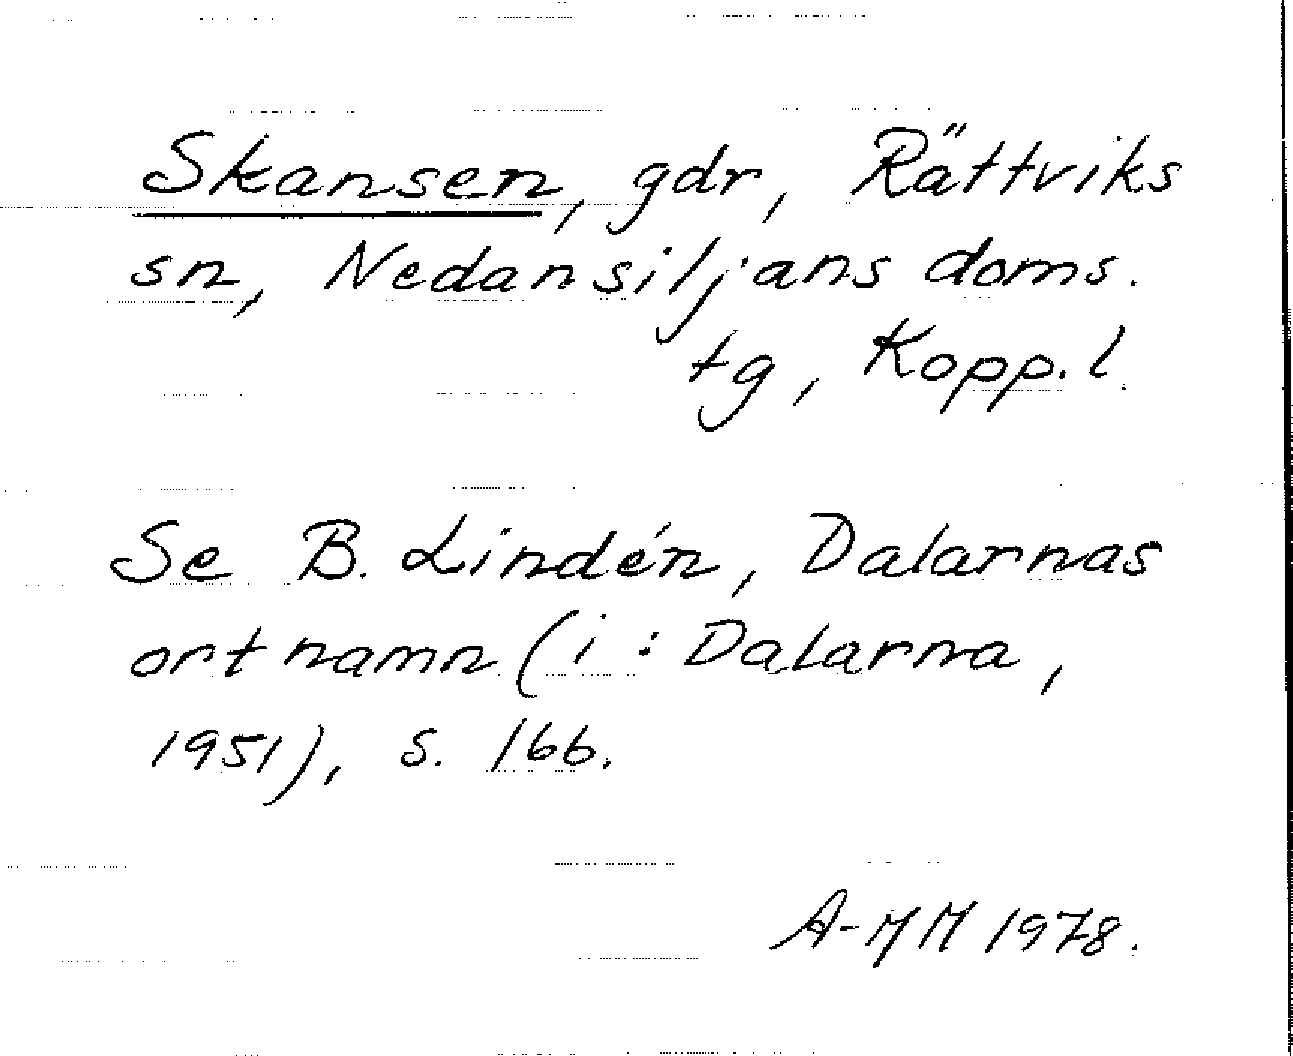 Skansen, gdr, Rättviks
sn, Nedansiljans doms.
tg, Kopp. l.
Se B. Lindén, Dalarnas
ortnamn (i: Dalarna,
1951), s. 166.
A-MM 1978.